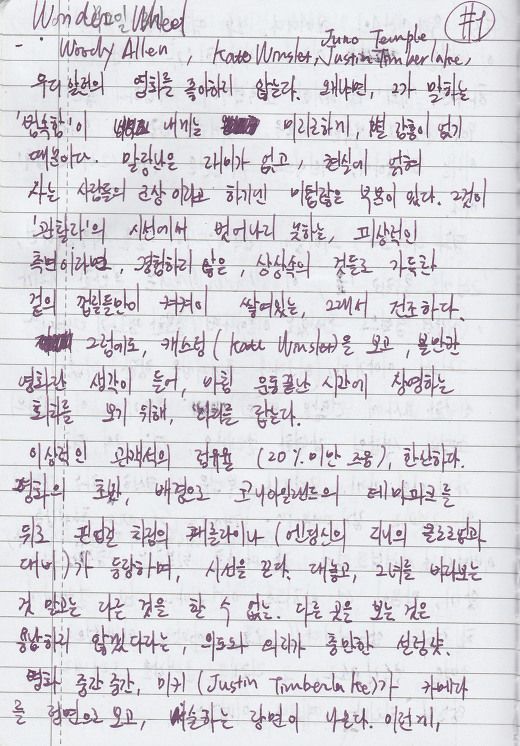 Wonder 휠 Wheel #1
- Woody Allen, Kate Winslet, Juno Temple, Justin Timberlake,
우디 알런의 영화를 좋아하지 않는다. 왜냐면, 그가 말하는
'법속함'이 내게는 미지근하게, 별 감흥이 없기
때문이다. 말장난은 재미가 없고, 현실에 얽혀
사는 사람들의 군상이라고 하기엔 미흡함은 부분이 있다. 그것이
'관찰자'의 시선에서 벗어나지 못하는, 피상적인
측면이라면, 경험하지 않은, 상상속의 것들로 가득찬
겉의 껍질들만이 켜켜이 쌓여있는, 그래서 건조하다.
그럼에도, 캐스팅 (Kate Winslet)을 보고, 볼만한
영화란 생각이 들어, 마침 운동끝난 시간에 상영하는
회차를 보기 위해, 티켓을 끊는다.
이상적인 관객석의 점유율 (20% 미만 조용), 한산하다.
영화의 초반, 배경으로 코니아일랜드의 테마파크를
뒤로 한 차림의 캐롤라이나 (엔딩신의 지니의 클로즈업과
대비)가 등장하며, 시선을 끈다. 대놓고, 그녀를 바라보는
것 말고는 다른 것을 할 수 없는. 다른 곳을 보는 것은
용납하지 않겠다라는, 의도와 의지가 충만한 설정샷.
영화 중간 중간, 미키 (Justin Timberlake)가 카메라
를 정면으로 보고, 하는 장면이 나온다. 이런게,